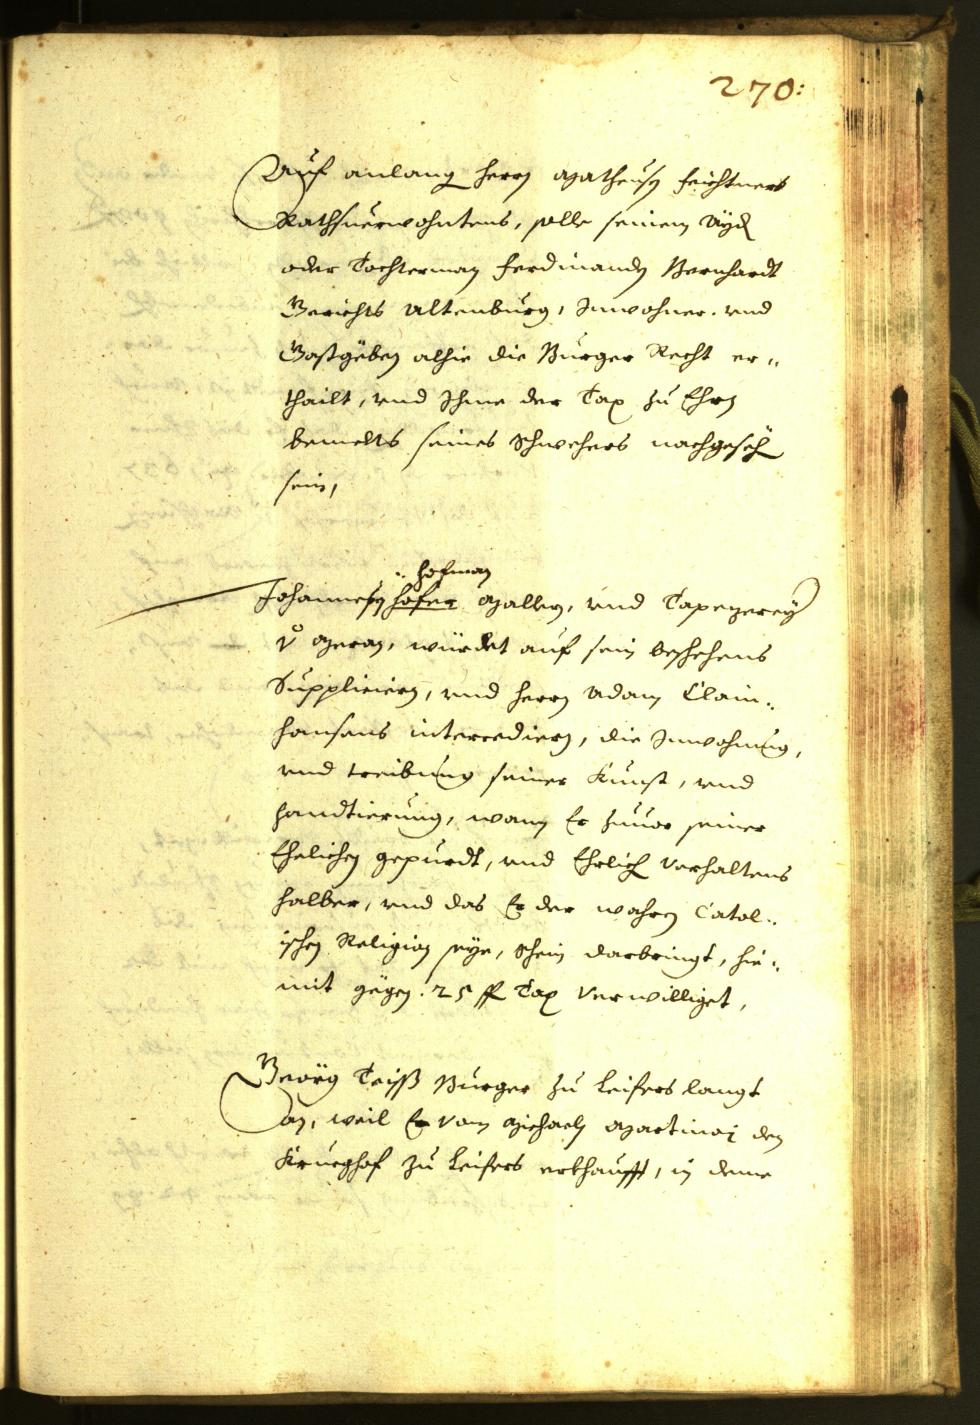 270:
Auf anlang herrn Matheusn Feichtners
Rathsuerwohntens, solle seinem Aÿd
oder Tochterman Ferdinandn Bernhardt
Gerichts Altenburg, Inwohner und
Gastgeben alhie die Burger Recht er„
thailt, vnd Ihme der Tax zu Ehrn
bemelts seines Schwehers nachgesech
sein,
„ Hofman
Johannesn Hofer Mallern, vnd Tapezereÿ
v Meran, würdet auf sein beschehens
Suppliciern, vnd herrn Adam Clain„
hansens intercediern, die Inwohnung,
vnd treibung seiner Kunst, vnd
handtierung, wann Er zuuor seiner
Ehelichen gepurdt, vnd Ehrlich verhaltens
halber, vnd das Er der wahren Catol„
ischen Religion seÿe, Schein darbringt, hie„
mit gegen . 25 fl Tax verwilliget,
Geörg Teiss Burger zu Leifers langt
an, weil Er vom Michaeln Martinoi den
Krueghof zu Leifers erkhaufft, in deme